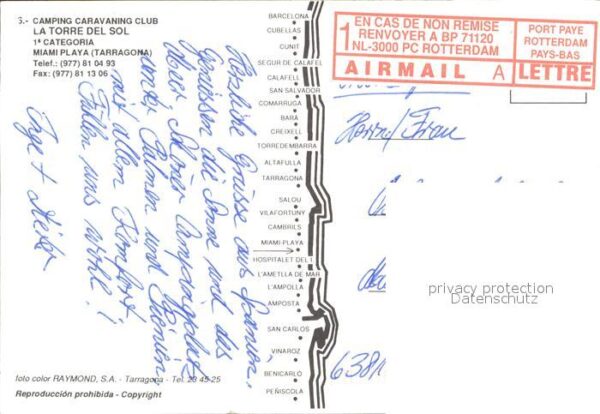 3.- CAMPING CARAVANING CLUB
LA TORRE DEL SOL
1ª CATEGORIA
MIAMI PLAYA (TARRAGONA)
Telef.: (977) 81 04 93
Fax: (977) 81 13 06
BARCELONA
CUBELLAS
CUNIT
SEGUR DE CALAFEL
CALAFELL
SAN SALVADOR
COMARRUGA
BARÁ
CREIXELL
TORREDEMBARRA
ALTAFULLA
TARRAGONA
SALOU
VILAFORTUNY
CAMBRILS
MIAMI PLAYA
HOSPITALET DEL I.
L'AMETLLA DE MAR
L'AMPOLLA
AMPOSTA
SAN CARLOS
VINAROZ
BENICARLO
PEÑISCOLA
1 EN CAS DE NON REMISE
RENVOYER A BP 71120
NL-3000 PC ROTTERDAM
AIRMAIL A
PORT PAYE
ROTTERDAM
PAYS-BAS
LETTRE
Herzliche Grüsse aus Spanien.
Geniessen die Sonne und das
Meer. Schöner Campingplatz
unter Palmen und
mit allem Komfort
Fühlen uns wohl!
Inge +
Herrn/Frau
privacy protection
Datenschutz
638
foto color RAYMOND, S.A. - Tarragona - Tel. 23 45 25
Reproducción prohibida - Copyright